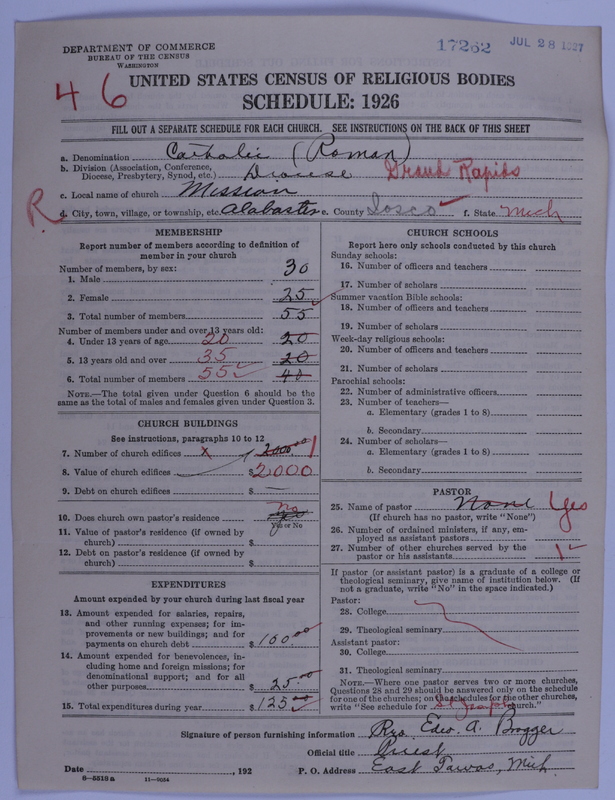 17262 JUL 28 1927
DEPARTMENT OF COMMERCE
BUREAU OF THE CENSUS
WASHINGTON
46
UNITED STATES CENSUS OF RELIGIOUS BODIES
SCHEDULE: 1926
FILL OUT A SEPARATE SCHEDULE FOR EACH CHURCH. SEE INSTRUCTIONS ON THE BACK OF THIS SHEET
a. Denomination Catholic (Roman)
b. Division (Association, Conference, Diocese, Presbytery, Synod, etc.) Diocese Grand Rapids
c. Local name of church Mission
R
d. City, town, village, or township, etc. Alabaster e. County Iosco f. State Mich
MEMBERSHIP
Report number of members according to definition of
member in your church
Number of members, by sex:
1. Male 30
2. Female 25
3. Total number of members 55
Number of members under and over 13 years old:
4. Under 13 years of age 20 20
5. 13 years old and over 35 20
6. Total number of members 55 40
NOTE.—The total given under Question 6 should be the
same as the total of males and females given under Question 3.
CHURCH BUILDINGS
See instructions, paragraphs 10 to 12
7. Number of church edifices x 2000.00 1
8. Value of church edifices $2000
9. Debt on church edifices $ —
10. Does church own pastor's residence No
Yes or No
11. Value of pastor's residence (if owned by
church) $
12. Debt on pastor's residence (if owned by
church) $
EXPENDITURES
Amount expended by your church during last fiscal year
13. Amount expended for salaries, repairs,
and other running expenses; for im-
provements or new buildings; and for
payments on church debt $100.00
14. Amount expended for benevolences, in-
cluding home and foreign missions; for
denominational support; and for all
other purposes $25.00
15. Total expenditures during year $125.00
CHURCH SCHOOLS
Report here only schools conducted by this church
Sunday schools:
16. Number of officers and teachers
17. Number of scholars
Summer vacation Bible schools:
18. Number of officers and teachers
19. Number of scholars
Week-day religious schools:
20. Number of officers and teachers
21. Number of scholars
Parochial schools:
22. Number of administrative officers
23. Number of teachers—
a. Elementary (grades 1 to 8)
b. Secondary
24. Number of scholars—
a. Elementary (grades 1 to 8)
b. Secondary
PASTOR
25. Name of pastor None Yes
(If church has no pastor, write "None")
26. Number of ordained ministers, if any, em-
ployed as assistant pastors
27. Number of other churches served by the
pastor or his assistants 1
If pastor (or assistant pastor) is a graduate of a college or
theological seminary, give name of institution below. (If
not a graduate, write "No" in the space indicated.)
Pastor:
28. College
29. Theological seminary
Assistant pastor:
30. College
31. Theological seminary
NOTE.—Where one pastor serves two or more churches,
Questions 28 and 29 should be answered only on the schedule
for one of the churches; on the schedules for the other churches,
write "See schedule for St Joseph church."
Signature of person furnishing information Rev. Edw. A.
Official title Priest
Date , 192 P. O. Address East Tawas, Mich
8—5518a 11—9054